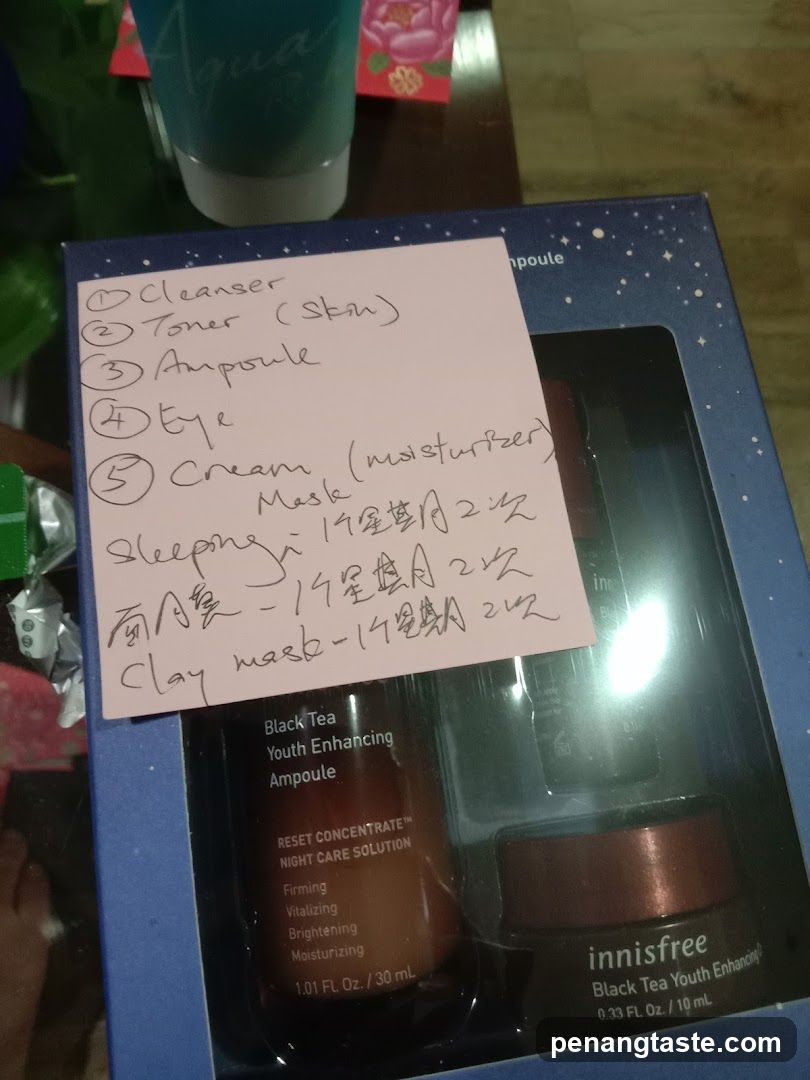 Aqua
mpoule
① Cleanser
② Toner (Skin)
③ Ampoule
④ Eye
⑤ Cream (moisturizer)
Mask
Sleeping - 1个星期 2次
面膜 - 1个星期 2次
Clay mask - 1个星期 2次
Black Tea
Youth Enhancing
Ampoule
RESET CONCENTRATE™
NIGHT CARE SOLUTION
Firming
Vitalizing
Brightening
Moisturizing
1.01 FL Oz. / 30 mL
innisfree
Black Tea Youth Enhancing
0.33 FL Oz. / 10 mL
penangtaste.com